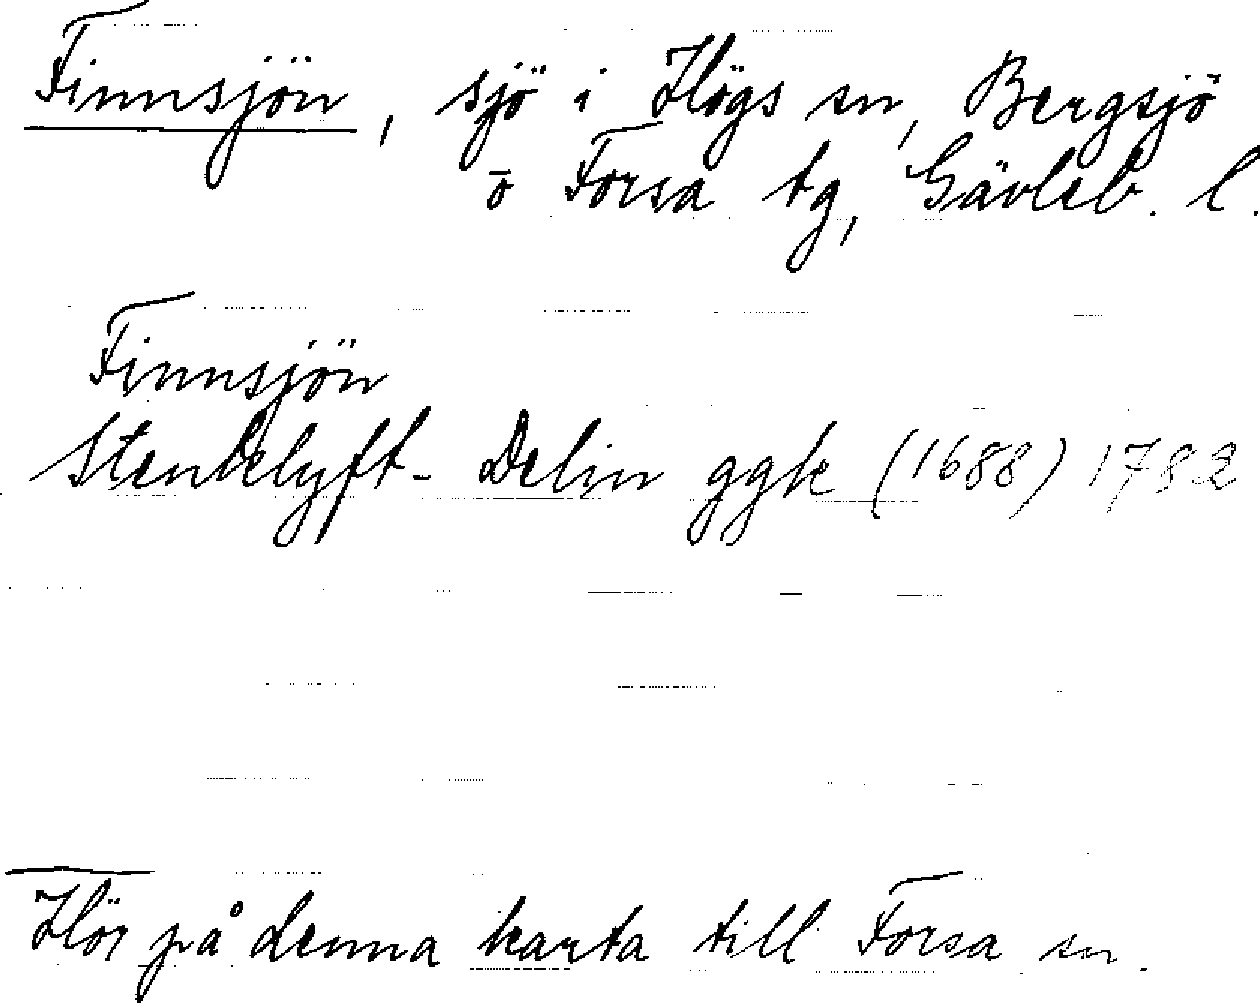 Finnsjön, sjö i Högs sn, Bergsjö
o Forsa tg, Gävleb. l.
Finnsjön
Stenklyft- Delin ggk (1688) 1782
Hör på denna karta till Forsa sn.